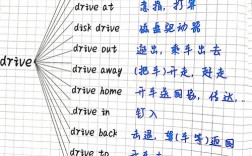 drive at 意指,打算
disk drive 磁盘驱动器
drive out 逐出,乘车出去
drive away (把车)开走,赶走
drive
drive home 开车送回家,传达,…
drive in 钉入
drive back 击退,驾(车等)返回
drive to